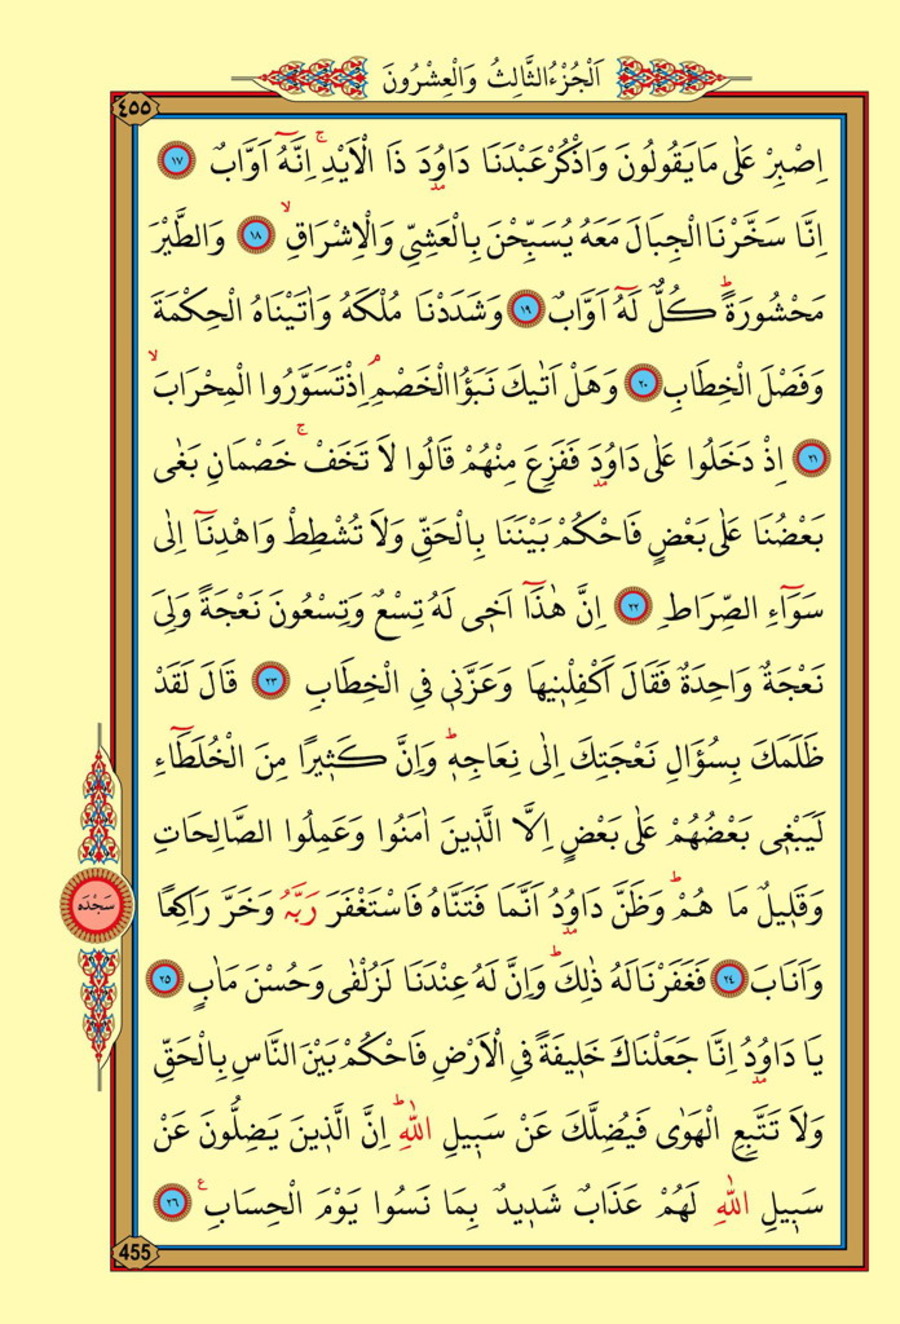 اَلْجُزْءُ الثَّالِثُ وَالْعِشْرُونَ
٤٥٥
اِصْبِرْ عَلٰى مَا يَقُولُونَ وَاذْكُرْ عَبْدَنَا دَاوُدَ ذَا الْاَيْدِۚ اِنَّهُٓ اَوَّابٌ ﴿١٧﴾
اِنَّا سَخَّرْنَا الْجِبَالَ مَعَهُ يُسَبِّحْنَ بِالْعَشِيِّ وَالْاِشْرَاقِۙ ﴿١٨﴾ وَالطَّيْرَ
مَحْشُورَةًۜ كُلٌّ لَهُٓ اَوَّابٌ ﴿١٩﴾ وَشَدَدْنَا مُلْكَهُ وَاٰتَيْنَاهُ الْحِكْمَةَ
وَفَصْلَ الْخِطَابِ ﴿٢٠﴾ وَهَلْ اَتٰيكَ نَبَؤُا الْخَصْمِۢ اِذْ تَسَوَّرُوا الْمِحْرَابَۙ
﴿٢١﴾ اِذْ دَخَلُوا عَلٰى دَاوُدَ فَفَزِعَ مِنْهُمْ قَالُوا لَا تَخَفْۚ خَصْمَانِ بَغٰى
بَعْضُنَا عَلٰى بَعْضٍ فَاحْكُمْ بَيْنَنَا بِالْحَقِّ وَلَا تُشْطِطْ وَاهْدِنَٓا اِلٰى
سَوَٓاءِ الصِّرَاطِ ﴿٢٢﴾ اِنَّ هٰذَٓا اَخ۪ي لَهُ تِسْعٌ وَتِسْعُونَ نَعْجَةً وَلِيَ
نَعْجَةٌ وَاحِدَةٌ فَقَالَ اَكْفِلْن۪يهَا وَعَزَّن۪ي فِي الْخِطَابِ ﴿٢٣﴾ قَالَ لَقَدْ
ظَلَمَكَ بِسُؤَالِ نَعْجَتِكَ اِلٰى نِعَاجِه۪ۜ وَاِنَّ كَث۪يرًا مِنَ الْخُلَطَٓاءِ
لَيَبْغ۪ي بَعْضُهُمْ عَلٰى بَعْضٍ اِلَّا الَّذ۪ينَ اٰمَنُوا وَعَمِلُوا الصَّالِحَاتِ
وَقَل۪يلٌ مَا هُمْۜ وَظَنَّ دَاوُدُ اَنَّمَا فَتَنَّاهُ فَاسْتَغْفَرَ رَبَّهُ وَخَرَّ رَاكِعًا
سَجْدَه
وَاَنَابَ ﴿٢٤﴾ فَغَفَرْنَا لَهُ ذٰلِكَۜ وَاِنَّ لَهُ عِنْدَنَا لَزُلْفٰى وَحُسْنَ مَاٰبٍ ﴿٢٥﴾
يَا دَاوُدُ اِنَّا جَعَلْنَاكَ خَل۪يفَةً فِي الْاَرْضِ فَاحْكُمْ بَيْنَ النَّاسِ بِالْحَقِّ
وَلَا تَتَّبِعِ الْهَوٰى فَيُضِلَّكَ عَنْ سَب۪يلِ اللّٰهِۜ اِنَّ الَّذ۪ينَ يَضِلُّونَ عَنْ
سَب۪يلِ اللّٰهِ لَهُمْ عَذَابٌ شَد۪يدٌ بِمَا نَسُوا يَوْمَ الْحِسَابِ۟ ﴿٢٦﴾
455